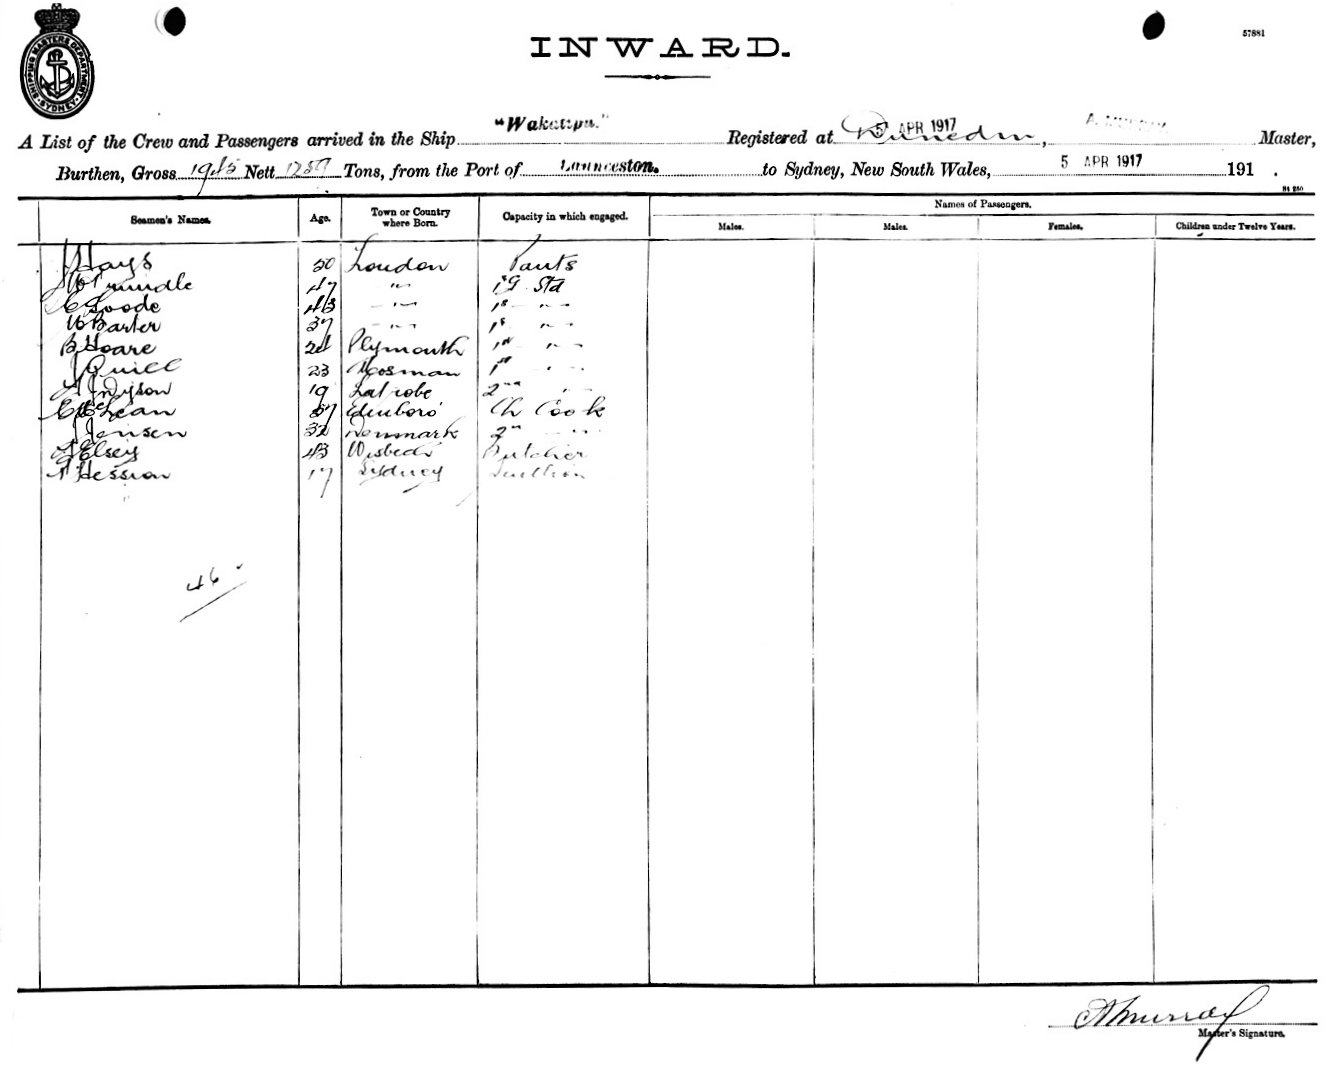 SHIPPING MASTERS DEPARTMENT SYDNEY
INWARD.
57881
A List of the Crew and Passengers arrived in the Ship "Wakatipu." Registered at Dunedin, 5 APR 1917 A. MURRAY. Master,
Burthen, Gross 1945 Nett Tons, from the Port of Launceston. to Sydney, New South Wales, 5 APR 1917 191 .
Seamen's Names. Age. Town or Country where Born. Capacity in which engaged. Names of Passengers.
Males. Males. Females. Children under Twelve Years.
J Hays 50 London Pants
W Trundle 47 " 1st Std
C Goode 43 - " - 1s " -
W Barter 37 - " - 1s " -
B Hoare 24 Plymouth 1st - " -
J Quill 23 Mosman 1st
A J Dyson 19 Latrobe 2nd
C McLean 37 Edinboro Ch Cook
J Jensen 32 Denmark 2n
Elsey 43 Wisbech Butcher
Hession 17 Sydney Scullion
46
A Murray
Master's Signature.